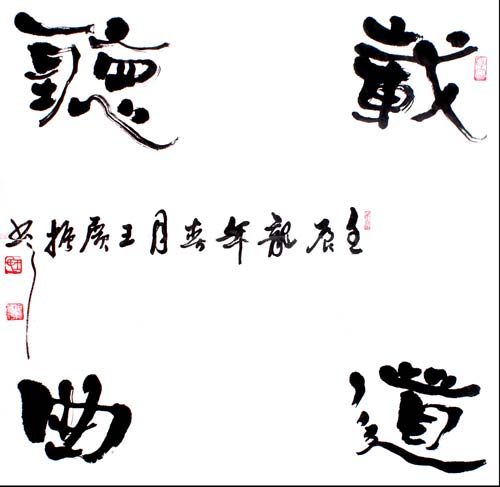 載道
聽曲
壬辰龍年春月王廣振书